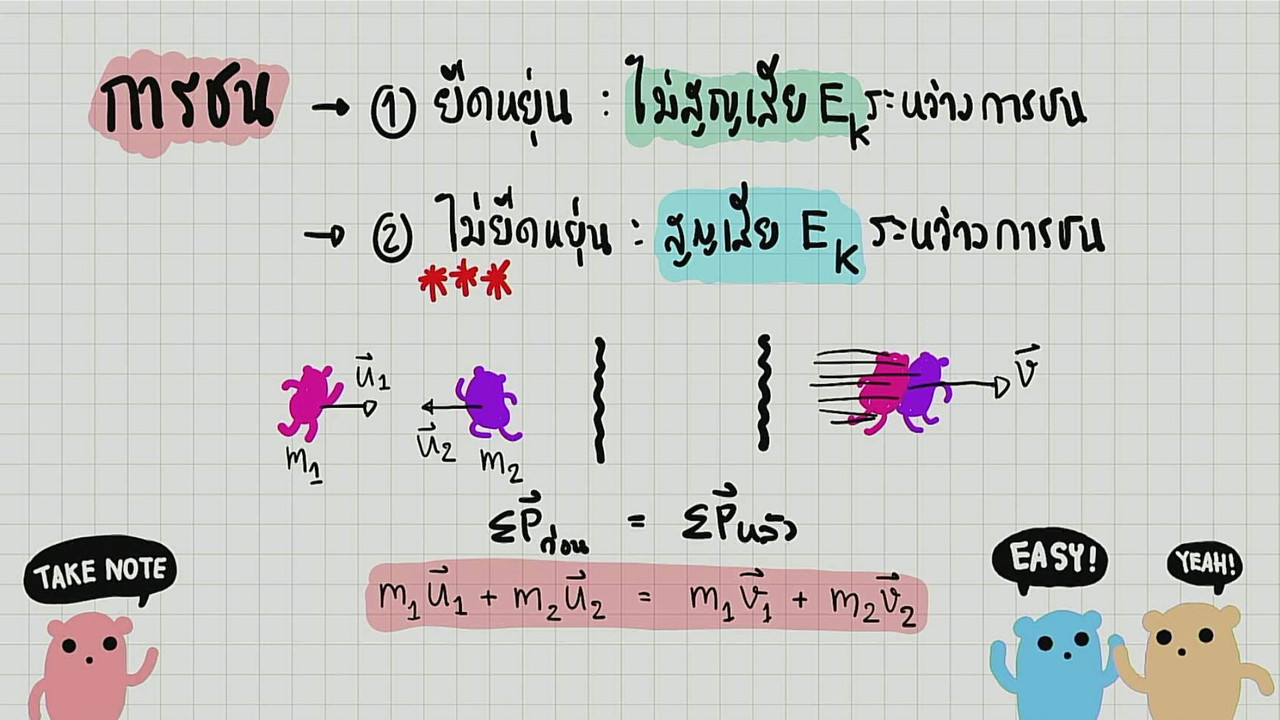 การชน → ① ยืดหยุ่น : ไม่สูญเสีย Eₖ ระหว่างการชน
→ ② ไม่ยืดหยุ่น : สูญเสีย Eₖ ระหว่างการชน
***
u⃗₁
v⃗
u⃗₂
m₁
m₂
ΣP⃗ก่อน = ΣP⃗หลัง
m₁u⃗₁ + m₂u⃗₂ = m₁v⃗₁ + m₂v⃗₂
TAKE NOTE
EASY!
YEAH!